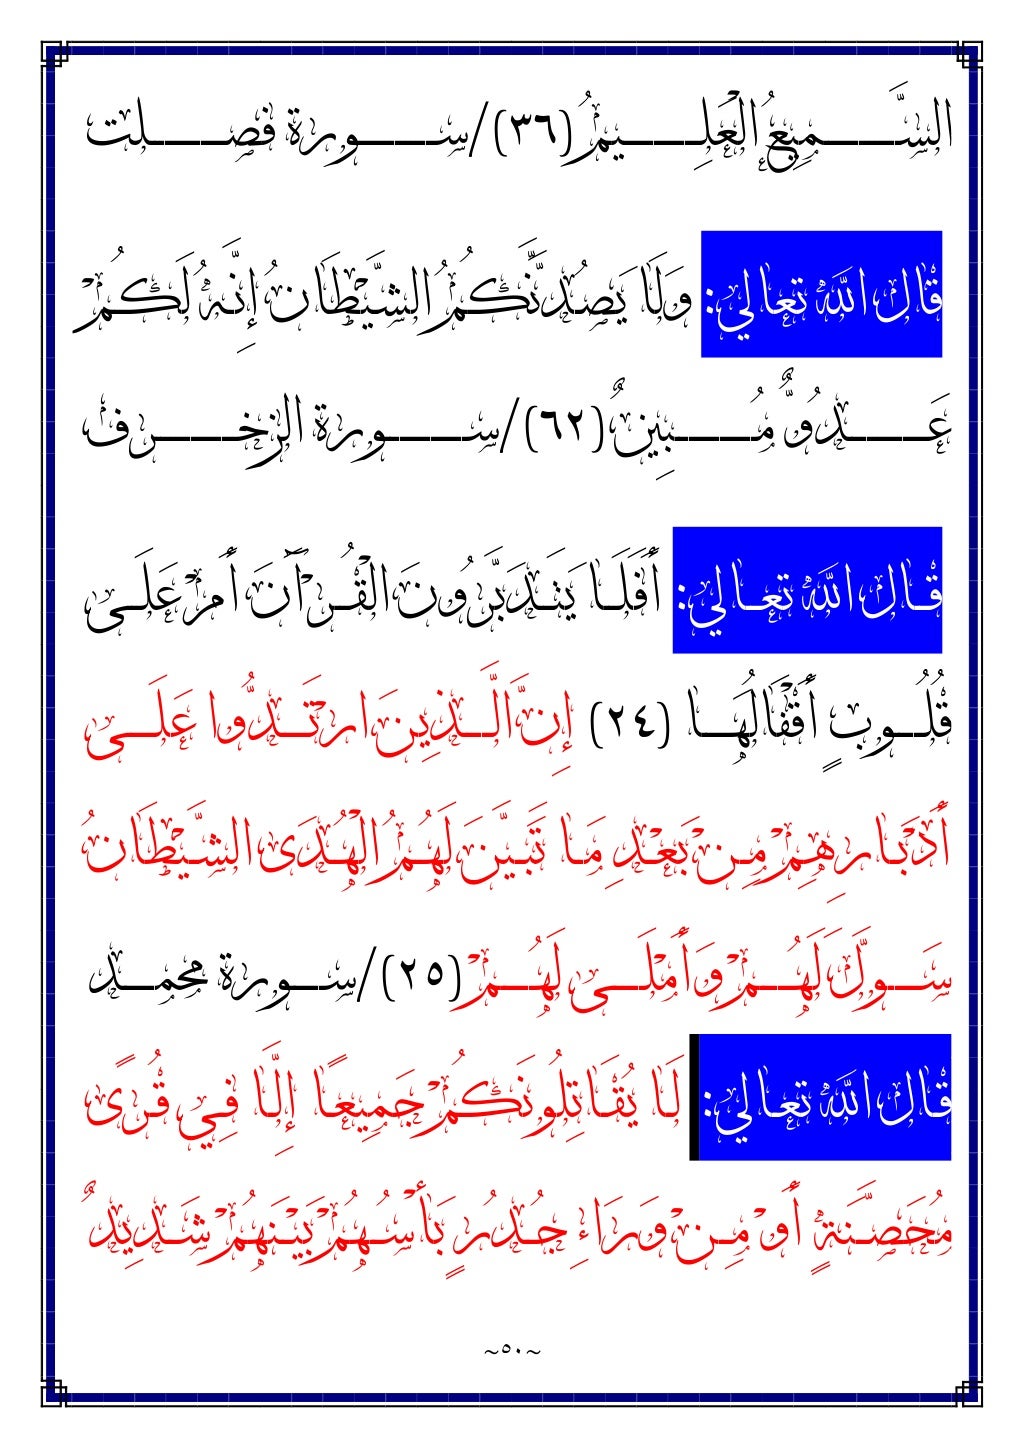 السَّمِيعُ الْعَلِيمُ (٣٦)/سورة فصلت
قال الله تعالي: وَلَا يَصُدَّنَّكُمُ الشَّيْطَانُ إِنَّهُ لَكُمْ
عَدُوٌّ مُبِينٌ (٦٢)/سورة الزخرف
قال الله تعالي: أَفَلَا يَتَدَبَّرُونَ الْقُرْآنَ أَمْ عَلَى
قُلُوبٍ أَقْفَالُهَا (٢٤) إِنَّ الَّذِينَ ارْتَدُّوا عَلَى
أَدْبَارِهِمْ مِنْ بَعْدِ مَا تَبَيَّنَ لَهُمُ الْهُدَى الشَّيْطَانُ
سَوَّلَ لَهُمْ وَأَمْلَى لَهُمْ (٢٥)/سورة محمد
قال الله تعالي: لَا يُقَاتِلُونَكُمْ جَمِيعًا إِلَّا فِي قُرًى
مُحَصَّنَةٍ أَوْ مِنْ وَرَاءِ جُدُرٍ بَأْسُهُمْ بَيْنَهُمْ شَدِيدٌ
~٥٠~